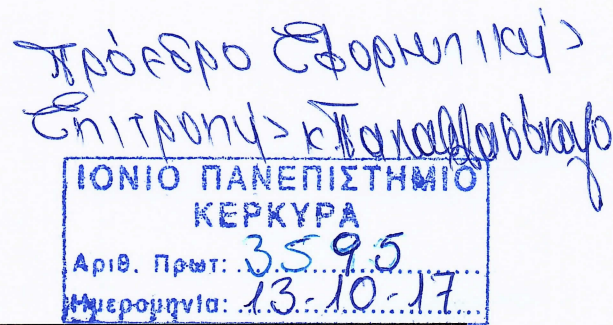 Πρόεδρο Εφορευτικής
Επιτροπής κ
ΙΟΝΙΟ ΠΑΝΕΠΙΣΤΗΜΙΟ
ΚΕΡΚΥΡΑ
Αριθ. Πρωτ: 3595
Ημερομηνία: 13-10-17